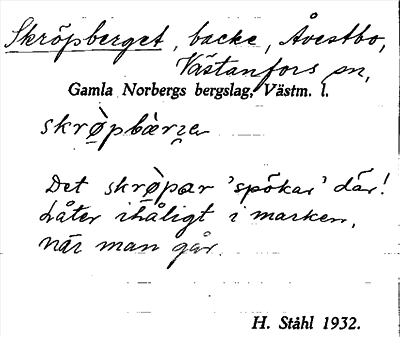 Skröpberget, backe, Åvestbo,
Västanfors sn,
Gamla Norbergs bergslag, Västm. l.
skrø̀pbæ̀rʒe
Det skrø̀par 'spökar' där!
Låter ihåligt i marken,
när man går.
H. Ståhl 1932.